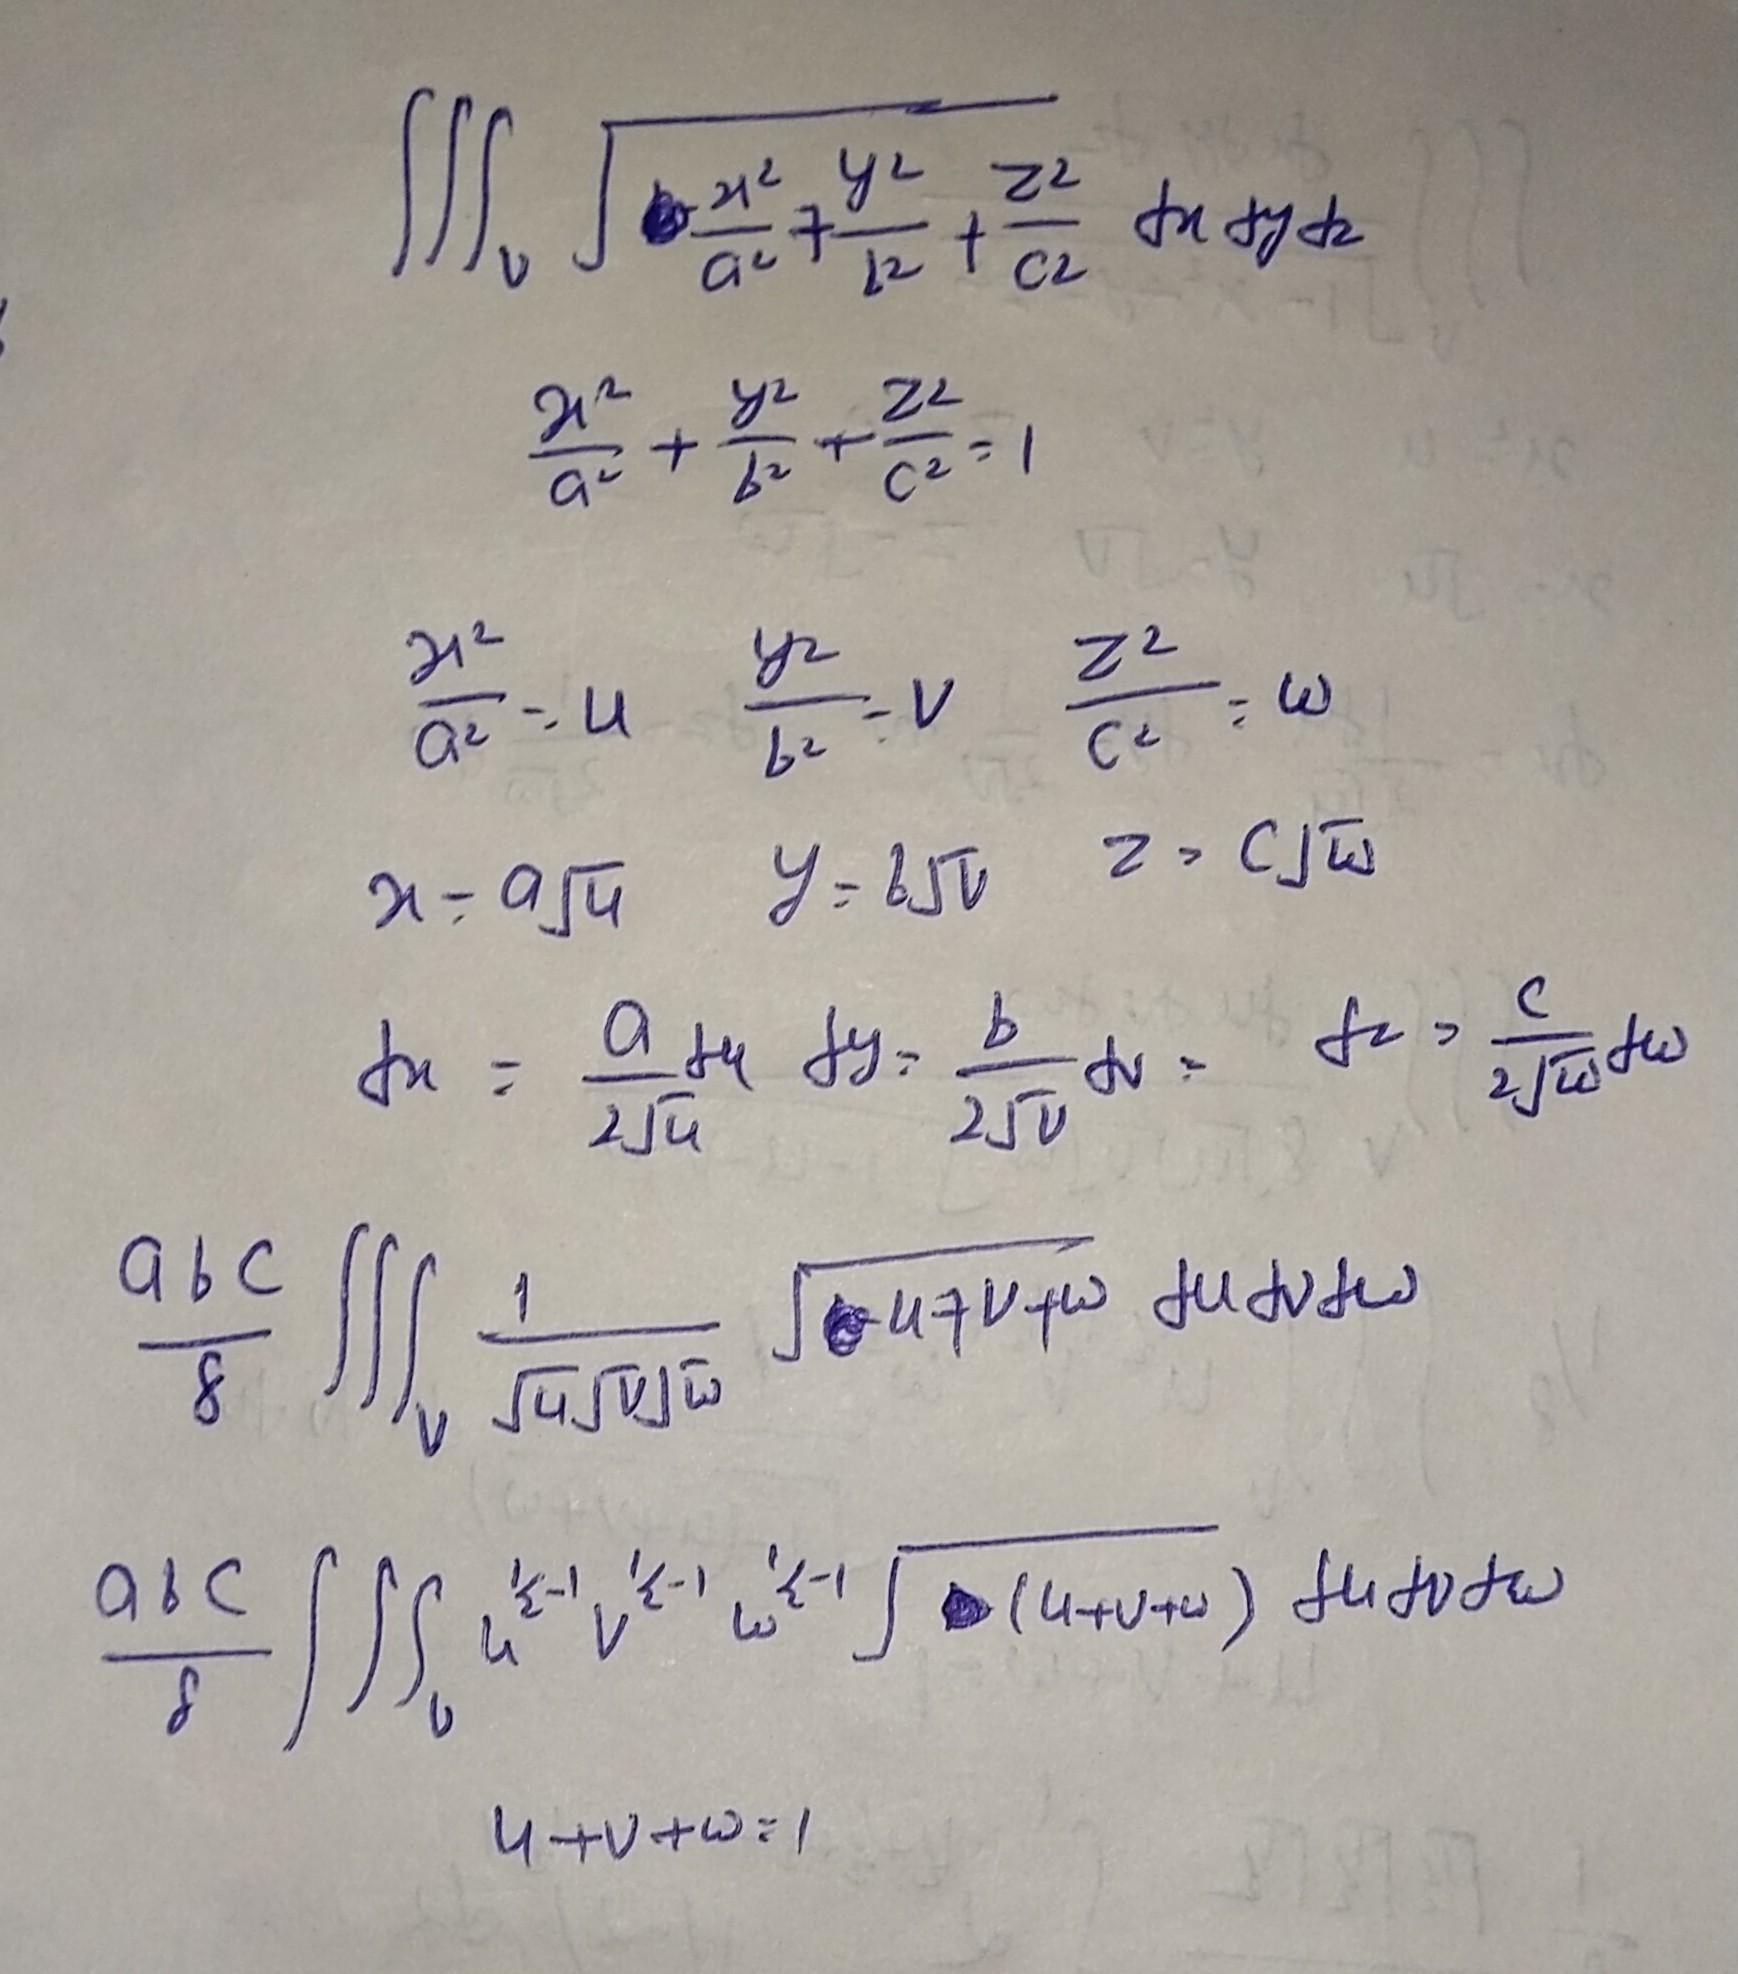 ∭_V √(x²/a² + y²/b² + z²/c²) dx dy dz
x²/a² + y²/b² + z²/c² = 1
x²/a² = u y²/b² = v z²/c² = w
x = a√u y = b√v z = c√w
dx = a/(2√u) du dy = b/(2√v) dv = dz = c/(2√w) dw
abc/8 ∭_V 1/(√u√v√w) √(u+v+w) du dv dw
abc/8 ∭_V u^(1/2-1) v^(1/2-1) w^(1/2-1) √(u+v+w) du dv dw
u+v+w=1